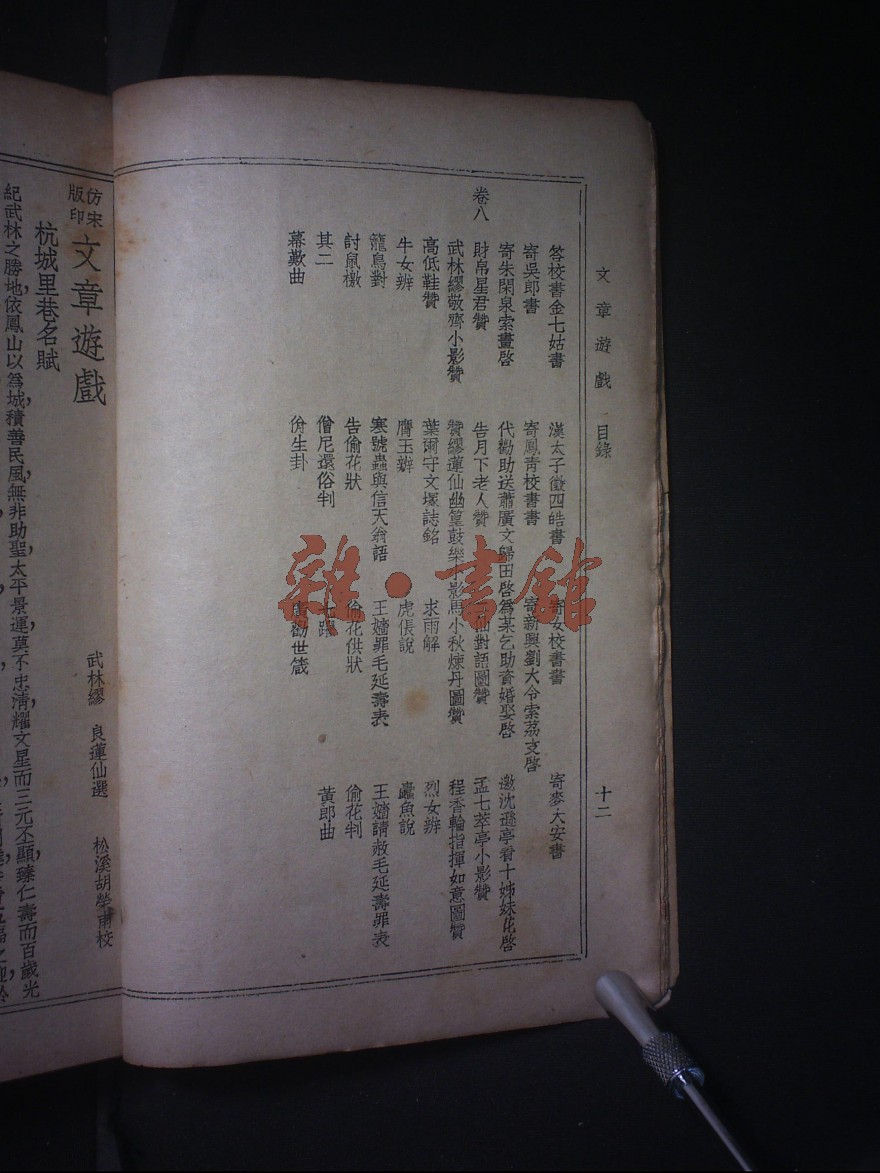 文章遊戲 目錄 十二
答校書金七姑書 漢太子徵四皓書 寄女校書書 寄麥大安書
寄吳郎書 寄鳳青校書書 寄新興劉大令索荔支啓
寄朱閑泉索畫啓 代勸助送蕭廣文歸田啓 爲某乞助資婚娶啓 邀沈遜亭看十姊妹花啓
卷八
財帛星君贊 告月下老人贊 仙對語圖贊 孟七萃亭小影贊
武林繆敬齊小影贊 贊繆蓮仙幽篁鼓樂小影 馬小秋煉丹圖贊 程香輪指揮如意圖贊
高低鞋贊 葉爾守文塚誌銘 求雨解 烈女辨
牛女辨 膺玉辨 虎倀說 蠹魚說
籠鳥對 寒號蟲與信天翁語 王嬙罪毛延壽表 王嬙請赦毛延壽罪表
討鼠檄 告偷花狀 偷花供狀 偷花判
其二 僧尼還俗判 七 黃郎曲
幕數曲 份生卦 勸世箴
仿宋版印 文章遊戲
武林繆 良蓮仙選 松溪胡 甫校
杭城里巷名賦
紀武林之勝地,依鳳山以爲城,積善民風,無非助聖,太平景運,莫不忠淸,耀文星而三元丕顯,臻仁壽而百歲光
雜·書館